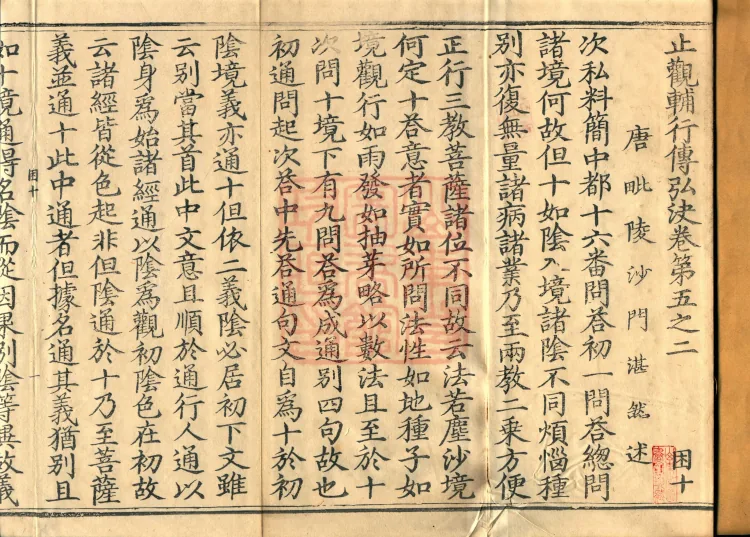 止觀輔行傳弘決卷第五之二
困十
唐毗陵沙門湛然述
次私料簡中都十六番問荅初一問荅總問
諸境何故但十如陰入境諸陰不同煩惱種
別亦復無量諸病諸業乃至兩教二乘方便
正行三教菩薩諸位不同故云法若塵沙境
何定十荅意者實如所問法性如地種子如
境觀行如雨發如抽芽略以數法且至於十
次問十境下有九問荅爲成通別四句故也
初通問起次荅中先荅通句文自爲十於初
陰境義亦通十但依二義陰必居初下文雖
云別當其首此中文意且順於通行人通以
陰身爲始諸經通以陰爲觀初陰色在初故
云諸經皆從色起非但陰通於十乃至菩薩
義並通十此中通者但據名通其義猶別且
困十
一
如十境通得名陰而從因果別陰等異故義